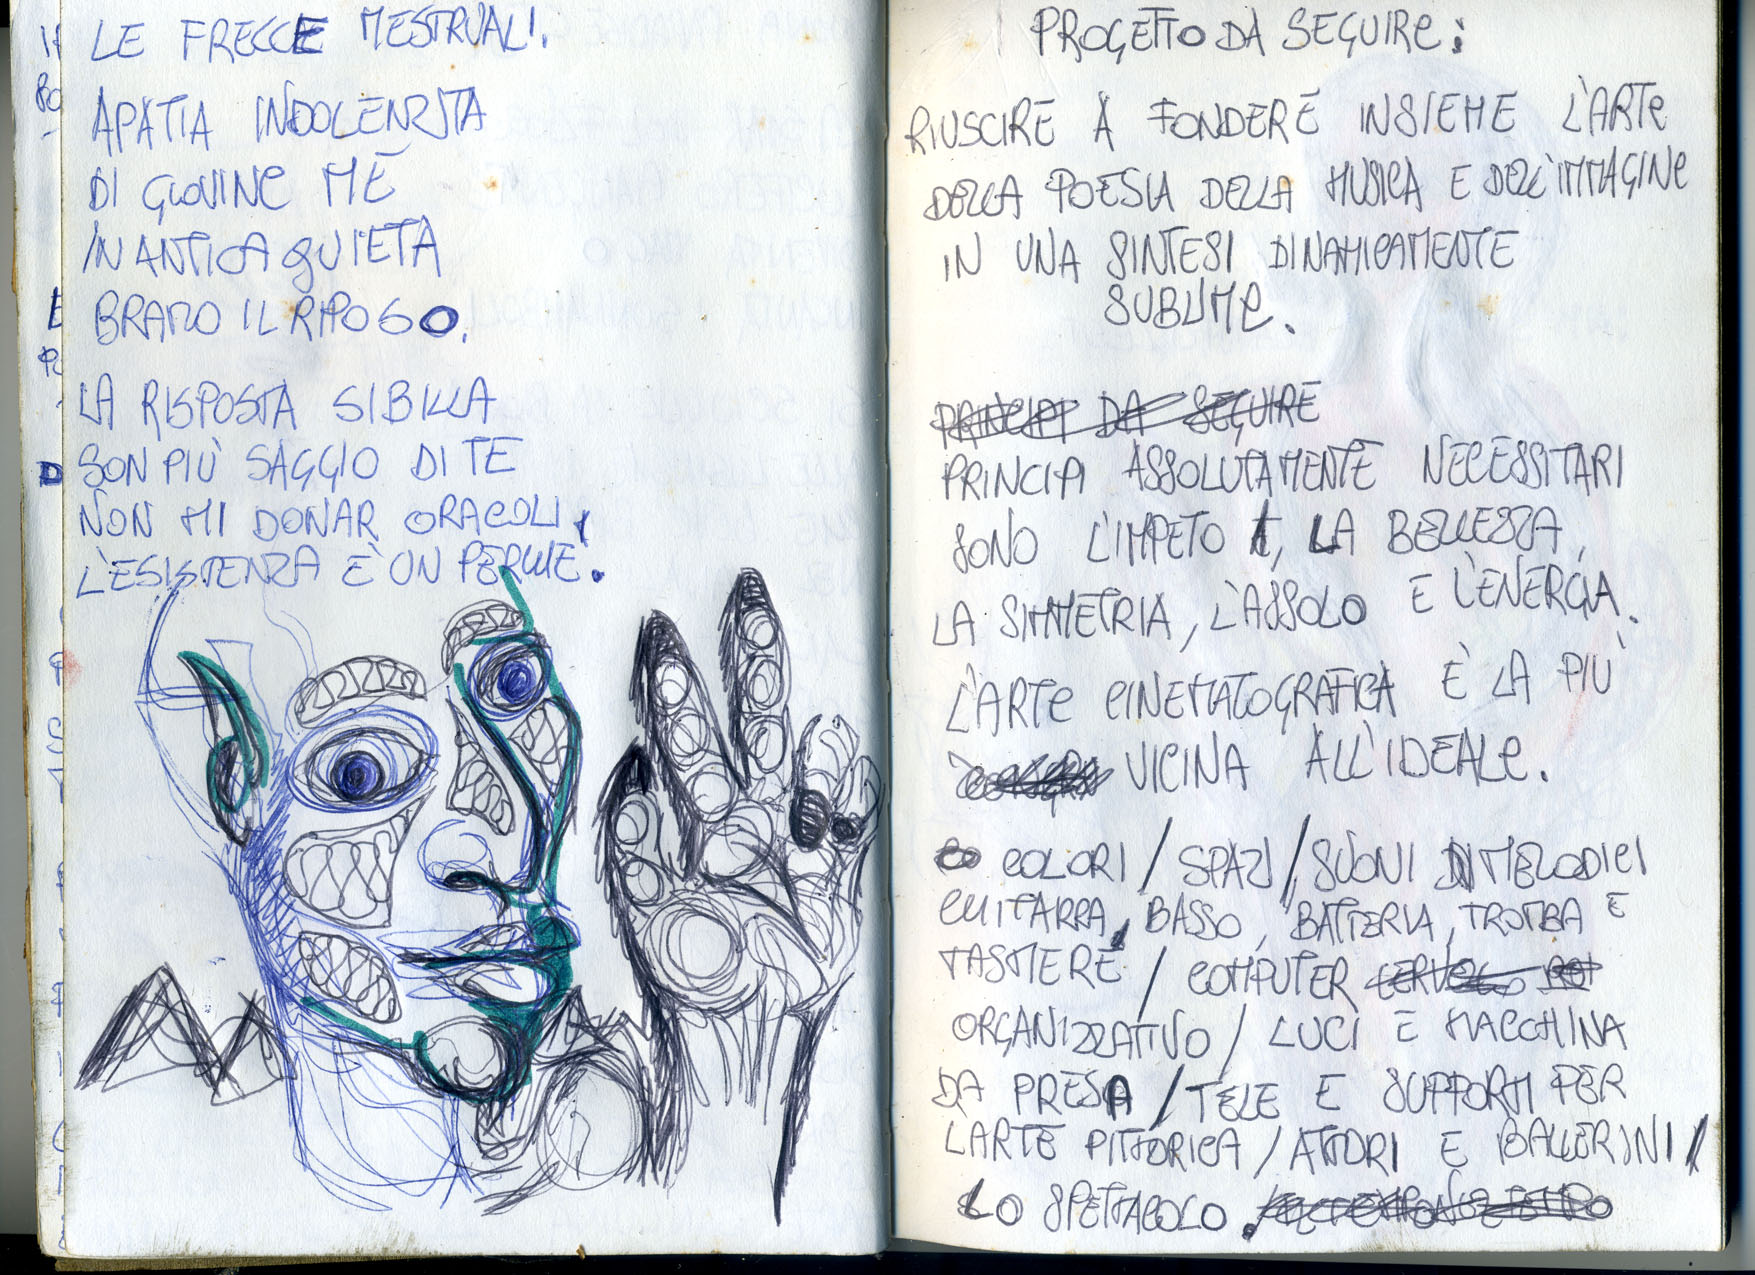 LE FRECCE MESTRUALI.
APATIA INDOLENZITA
DI GIOVINE ME
IN ANTICA QUIETA
BRAMO IL RIPOSO.
LA RISPOSTA SIBILLA
SON PIÙ SAGGIO DI TE
NON MI DONAR ORACOLI,
L'ESISTENZA È UN PERCHÈ.
PROGETTO DA SEGUIRE:
RIUSCIRE A FONDERE INSIEME L'ARTE
DELLA POESIA DELLA MUSICA E DELL'IMMAGINE
IN UNA SINTESI DINAMICAMENTE
SUBLIME.
PRINCIPI DA SEGUIRE
PRINCIPI ASSOLUTAMENTE NECESSITARI
SONO L'IMPETO, LA BELLEZZA,
LA SIMMETRIA, L'ASSOLO E L'ENERGIA.
L'ARTE CINEMATOGRAFICA È LA PIÙ
VICINA ALL'IDEALE.
COLORI / SPAZI / SUONI MELODICI
CHITARRA, BASSO, BATTERIA, TROMBA E
TASTIERE / COMPUTER
ORGANIZZATIVO / LUCI E MACCHINA
DA PRESA / TELE E SUPPORTI PER
L'ARTE PITTORICA / ATTORI E BALLERINI /
LO SPETTACOLO.